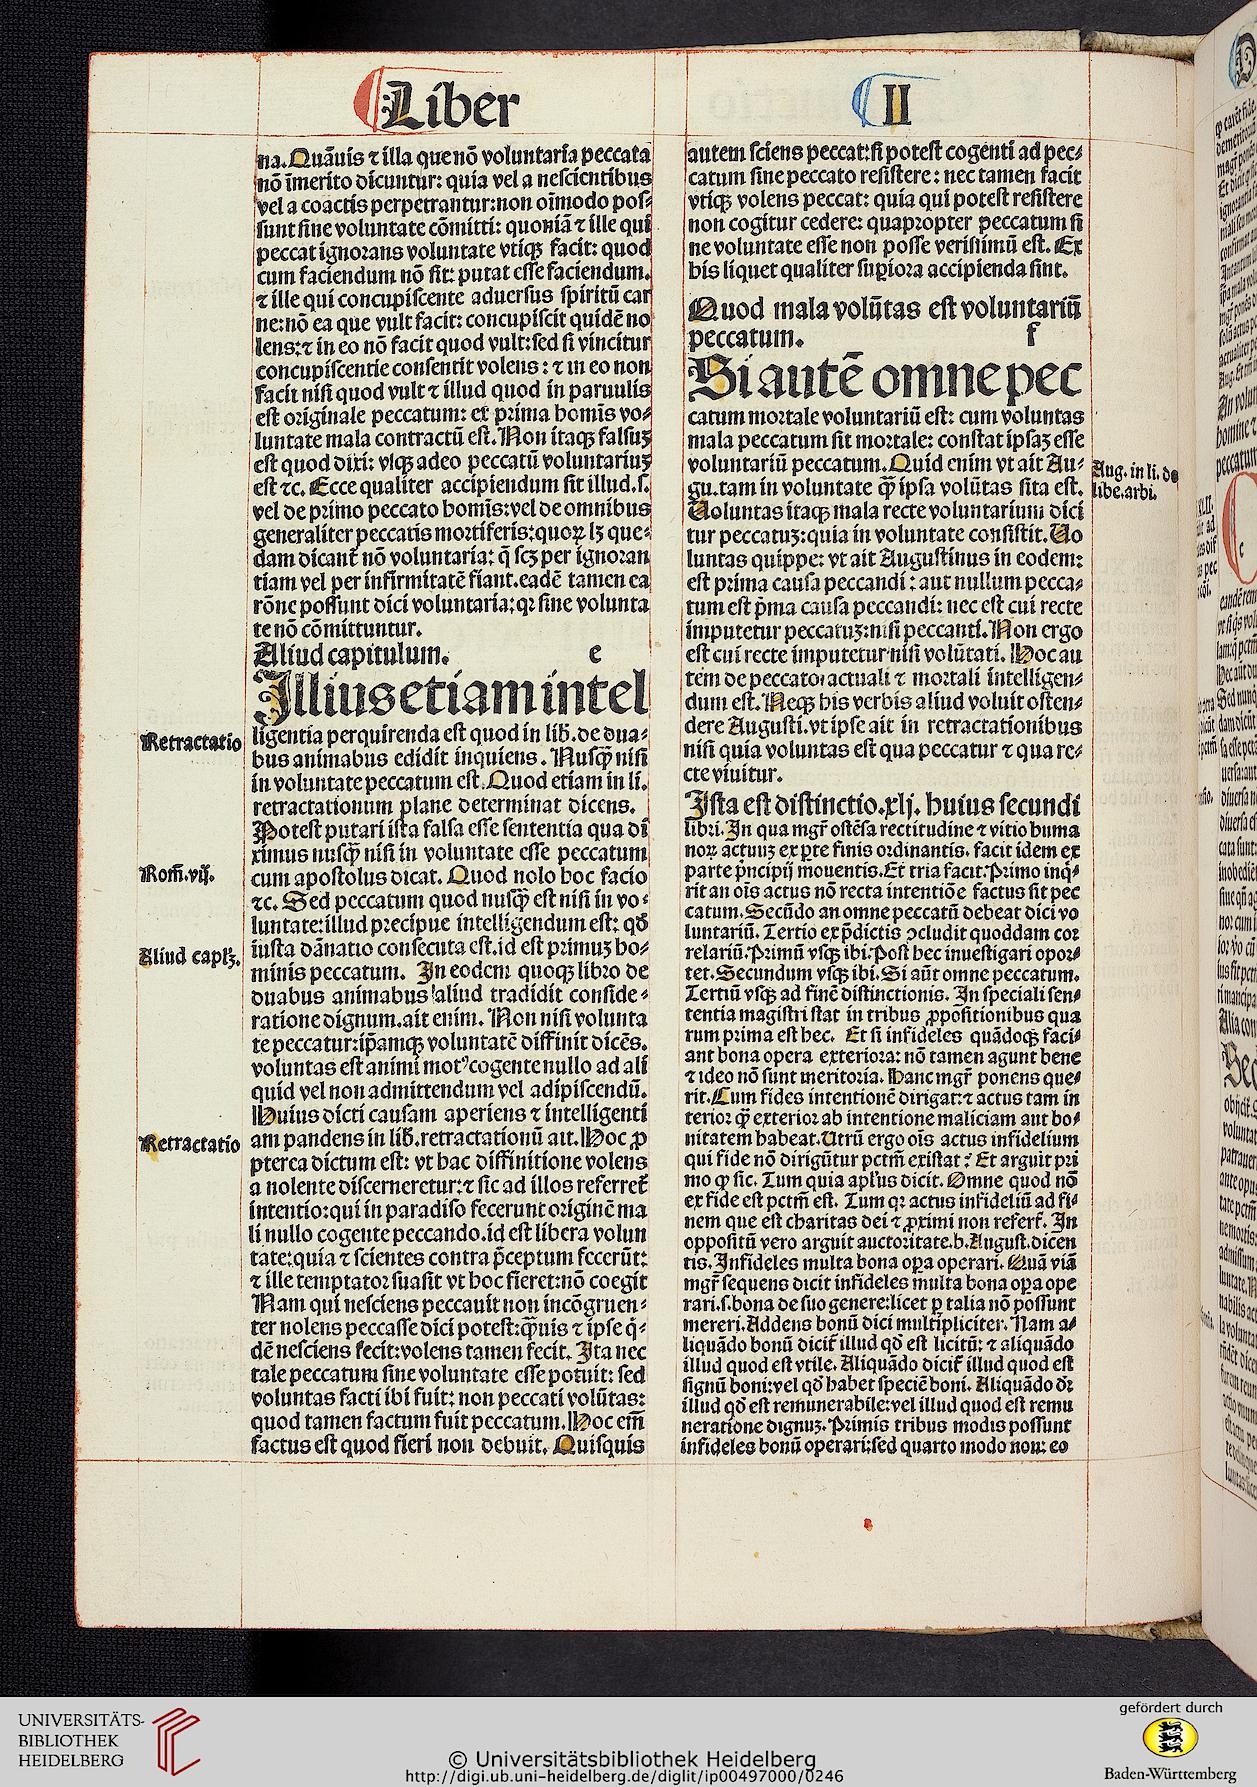 Liber
II
na. Quãuis ⁊ illa que nõ voluntaria peccata
nõ ĩmerito dicuntur: quia vel a nescientibus
vel a coactis perpetrantur: non oĩmodo pos⸗
sunt sine voluntate cõmitti: quoniã ⁊ ille qui
peccat ignorans voluntate vtiqꝫ facit: quod
cum faciendum nõ sit: putat esse faciendum.
⁊ ille qui concupiscente aduersus spiritũ car
ne: nõ ea que vult facit: concupiscit quidẽ no
lens: ⁊ in eo nõ facit quod vult: sed si vincitur
concupiscentie consentit volens: ⁊ in eo non
facit nisi quod vult ⁊ illud quod in paruulis
est originale peccatum: ex prima homĩs vo⸗
luntate mala contractũ est. Non itaqꝫ falsuꝫ
est quod dixi: vsqꝫ adeo peccatũ voluntariuꝫ
est ⁊c. Ecce qualiter accipiendum sit illud. s.
vel de primo peccato homĩs: vel de omnibus
generaliter peccatis mortiferis: quoꝝ lꝫ que⸗
dam dicant̃ nõ voluntaria: q̃ scꝫ per ignoran
tiam vel per infirmitatẽ fiant. eadẽ tamen ea
rõne possunt dici voluntaria: qꝛ sine volunta
te nõ cõmittuntur.
Aliud capitulum. e
Illius etiam intel
ligentia perquirenda est quod in lib̃. de dua⸗
bus animabus edidit inquiens. Nusqͣ̃ nisi
in voluntate peccatum est. Quod etiam in li.
retractationum plane determinat dicens.
Potest putari ista falsa esse sententia qua di
ximus nusqͣ̃ nisi in voluntate esse peccatum
cum apostolus dicat. Quod nolo hoc facio
⁊c. Sed peccatum quod nusqͣ̃ est nisi in vo⸗
luntate: illud precipue intelligendum est: qđ
iusta dãnatio consecuta est. id est primuꝫ ho⸗
minis peccatum. In eodem quoqꝫ libro de
duabus animabus aliud tradidit conside⸗
ratione dignum. ait enim. Non nisi volunta
te peccatur: ip̃amqꝫ voluntatẽ diffinit dicẽs.
voluntas est animi motꝰ cogente nullo ad ali
quid vel non admittendum vel adipiscendũ.
Huius dicti causam aperiens ⁊ intelligenti
am pandens in lib̃. retractationũ ait. Hoc ꝓ
pterea dictum est: vt hac diffinitione volens
a nolente discerneretur: ⁊ sic ad illos referret̃
intentio: qui in paradiso fecerunt originẽ ma
li nullo cogente peccando. id est libera volun
tate: quia ⁊ scientes contra p̃ceptum fecerũt:
⁊ ille temptator suasit vt hoc fieret: nõ coegit
Nam qui nesciens peccauit non incõgruen⸗
ter nolens peccasse dici potest: qͣ̃uis ⁊ ipse q̇⸗
dẽ nesciens fecit: volens tamen fecit. Ita nec
tale peccatum sine voluntate esse potuit: sed
voluntas facti ibi fuit: non peccati volũtas:
quod tamen factum fuit peccatum. Hoc em̃
factus est quod fieri non debuit. Quisquis
Retractatio
Rom̃. vij.
Aliud caplꝫ.
Retractatio
autem sciens peccat: si potest cogenti ad pec⸗
catum sine peccato resistere: nec tamen facit
vtiqꝫ volens peccat: quia qui potest resistere
non cogitur cedere: quapropter peccatum si
ne voluntate esse non posse verissimũ est. Ex
his liquet qualiter suꝑiora accipienda sint.
Quod mala volũtas est voluntariũ
peccatum. f
Si autẽ omne pec
catum mortale voluntariũ est: cum voluntas
mala peccatum sit mortale: constat ipsaꝫ esse
voluntariũ peccatum. Quid enim vt ait Au⸗
gu. tam in voluntate qͣ̃ ipsa volũtas sita est.
Voluntas itaqꝫ mala recte voluntarium dici
tur peccatuꝫ: quia in voluntate consistit. Vo
luntas quippe: vt ait Augustinus in eodem:
est prima causa peccandi: aut nullum pecca⸗
tum est p̃ma causa peccandi: nec est cui recte
imputetur peccatuꝫ: nisi peccanti. Non ergo
est cui recte imputetur nisi volũtati. Hoc au
tem de peccato actuali ⁊ mortali intelligen⸗
dum est. Neqꝫ his verbis aliud voluit osten⸗
dere Augusti. vt ipse ait in retractationibus
nisi quia voluntas est qua peccatur ⁊ qua re⸗
cte viuitur.
Ista est distinctio. xlj. huius secundi
libri. In qua mgr̃ ostẽsa rectitudine ⁊ vitio huma
noꝝ actuuꝫ ex ꝑte finis ordinantis. facit idem ex
parte p̃ncipij mouentis. Et tria facit. Primo inq̇⸗
rit an oĩs actus nõ recta intentiõe factus sit pec
catum. Secũdo an omne peccatũ debeat dici vo
luntariũ. Tertio ex p̃dictis ↄcludit quoddam cor
relariũ. Primũ vsqꝫ ibi. Post hec inuestigari opor⸗
tet. Secundum vsqꝫ ibi. Si aũt omne peccatum.
Tertiũ vsqꝫ ad finẽ distinctionis. In speciali sen⸗
tentia magistri stat in tribus ꝓpositionibus qua
rum prima est hec. Et si infideles quãdoqꝫ faci⸗
ant bona opera exteriora: nõ tamen agunt bene
⁊ ideo nõ sunt meritoria. Hanc mgr̃ ponens que⸗
rit. Cum fides intentionẽ dirigat: ⁊ actus tam in
terior qͣ̃ exterior ab intentione maliciam aut bo⸗
nitatem habeat. Vtrũ ergo oĩs actus infidelium
qui fide nõ dirigũtur pctm̃ existat? Et arguit pri
mo ꝙ sic. Tum quia apl̃us dicit. Omne quod nõ
ex fide est pctm̃ est. Tum qꝛ actus infideliũ ad fi⸗
nem que est charitas dei ⁊ ꝓximi non refert̃. In
oppositũ vero arguit auctoritate. b. August. dicen
tis. Infideles multa bona oꝑa operari. Quã viã
mgr̃ sequens dicit infideles multa bona oꝑa ope
rari. s. bona de suo genere: licet ꝑ talia nõ possunt
mereri. Addens bonũ dici multipliciter. Nam a⸗
liquãdo bonũ dicit̃ illud qđ est licitũ: ⁊ aliquãdo
illud quod est vtile. Aliquãdo dicit̃ illud quod est
signũ boni: vel qđ habet speciẽ boni. Aliquãdo dr̃
illud qđ est remunerabile: vel illud quod est remu
neratione dignuꝫ. Primis tribus modis possunt
infideles bonũ operari: sed quarto modo non: eo
Aug. in li. de
libe. arbi.
UNIVERSITÄTS-
BIBLIOTHEK
HEIDELBERG
© Universitätsbibliothek Heidelberg
http://digi.ub.uni-heidelberg.de/diglit/ip00497000/0246
gefördert durch
Baden-Württemberg